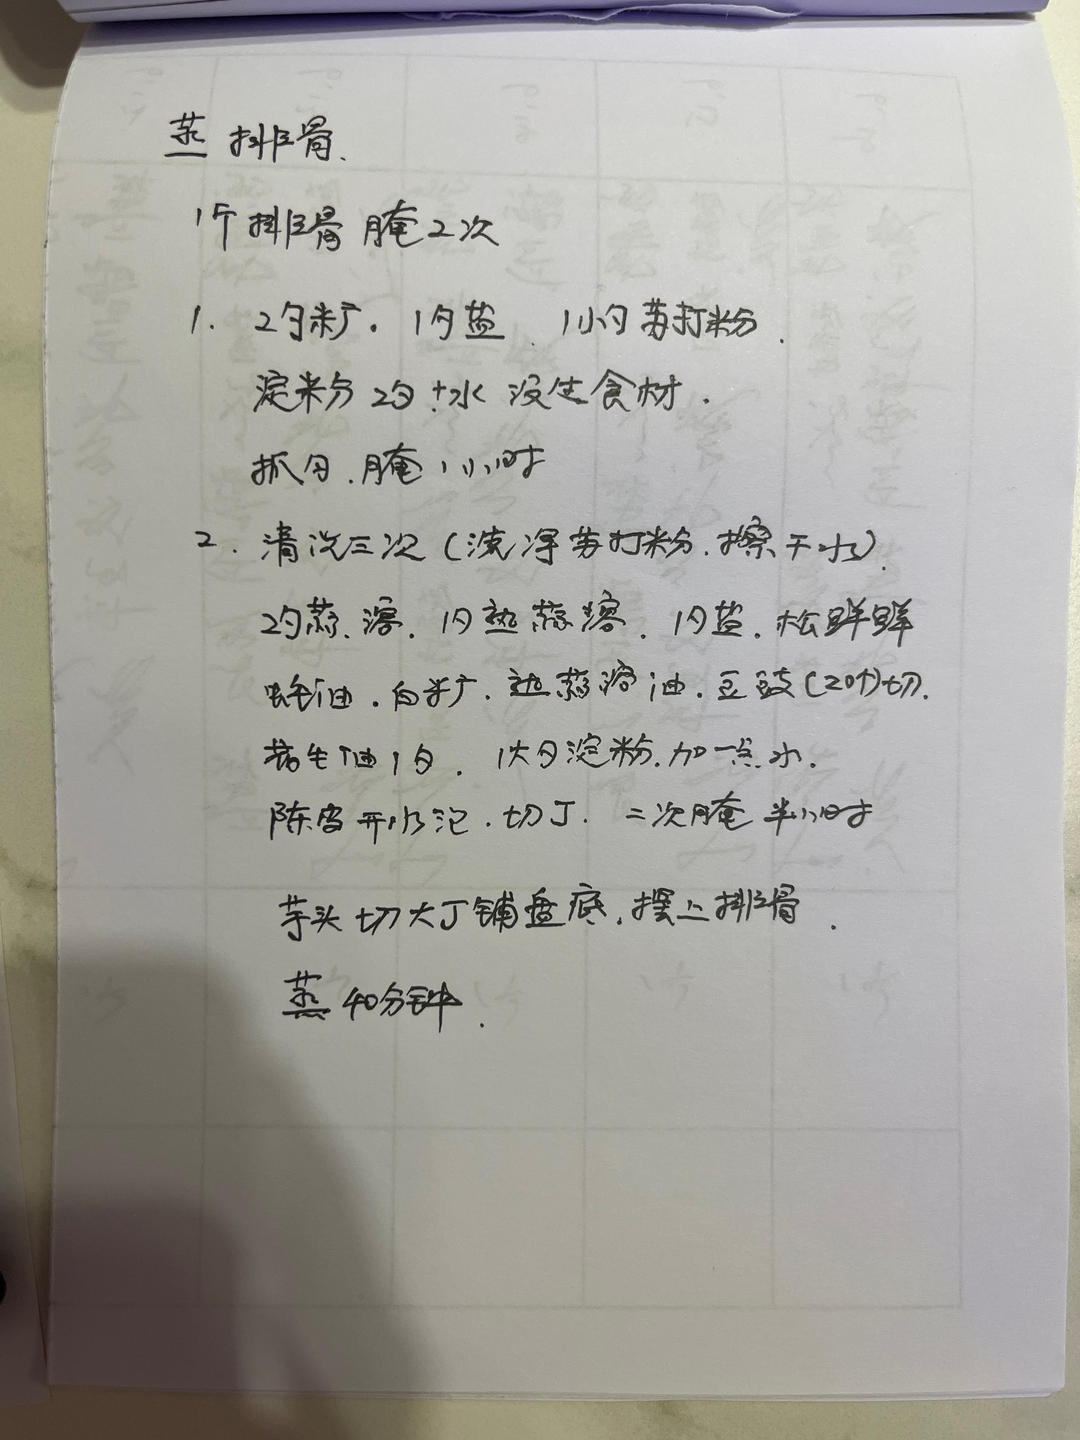 蒸排骨.
1斤排骨腌2次
1. 2勺米广. 1勺盐. 1小勺苏打粉.
淀粉2勺+水 没住食材.
抓匀.腌1小时
2. 清洗三次(洗净苏打粉.擦干水).
2勺蒜溶. 1勺熟蒜溶. 1勺盐. 松鲜鲜
蚝油. 白米广. 熟蒜溶油. 豆豉(20个)切.
花生油1勺. 1大勺淀粉.加一点水.
陈皮开水泡.切丁. 二次腌半小时
芋头切大丁铺盘底.摆上排骨.
蒸40分钟.